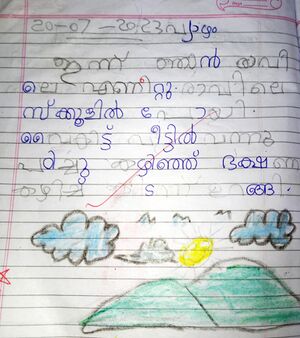 20-07-2023 വ്യാഴം
ഇന്ന് ഞാൻ രാവി
ലെ എണീറ്റു. രാവിലെ
സ്ക്കൂളിൽ പോയി.
വൈകിട്ട് വീട്ടിൽ വന്നു
പഠിച്ചു കഴിഞ്ഞ് ഭക്ഷണ
കഴിച്ച്